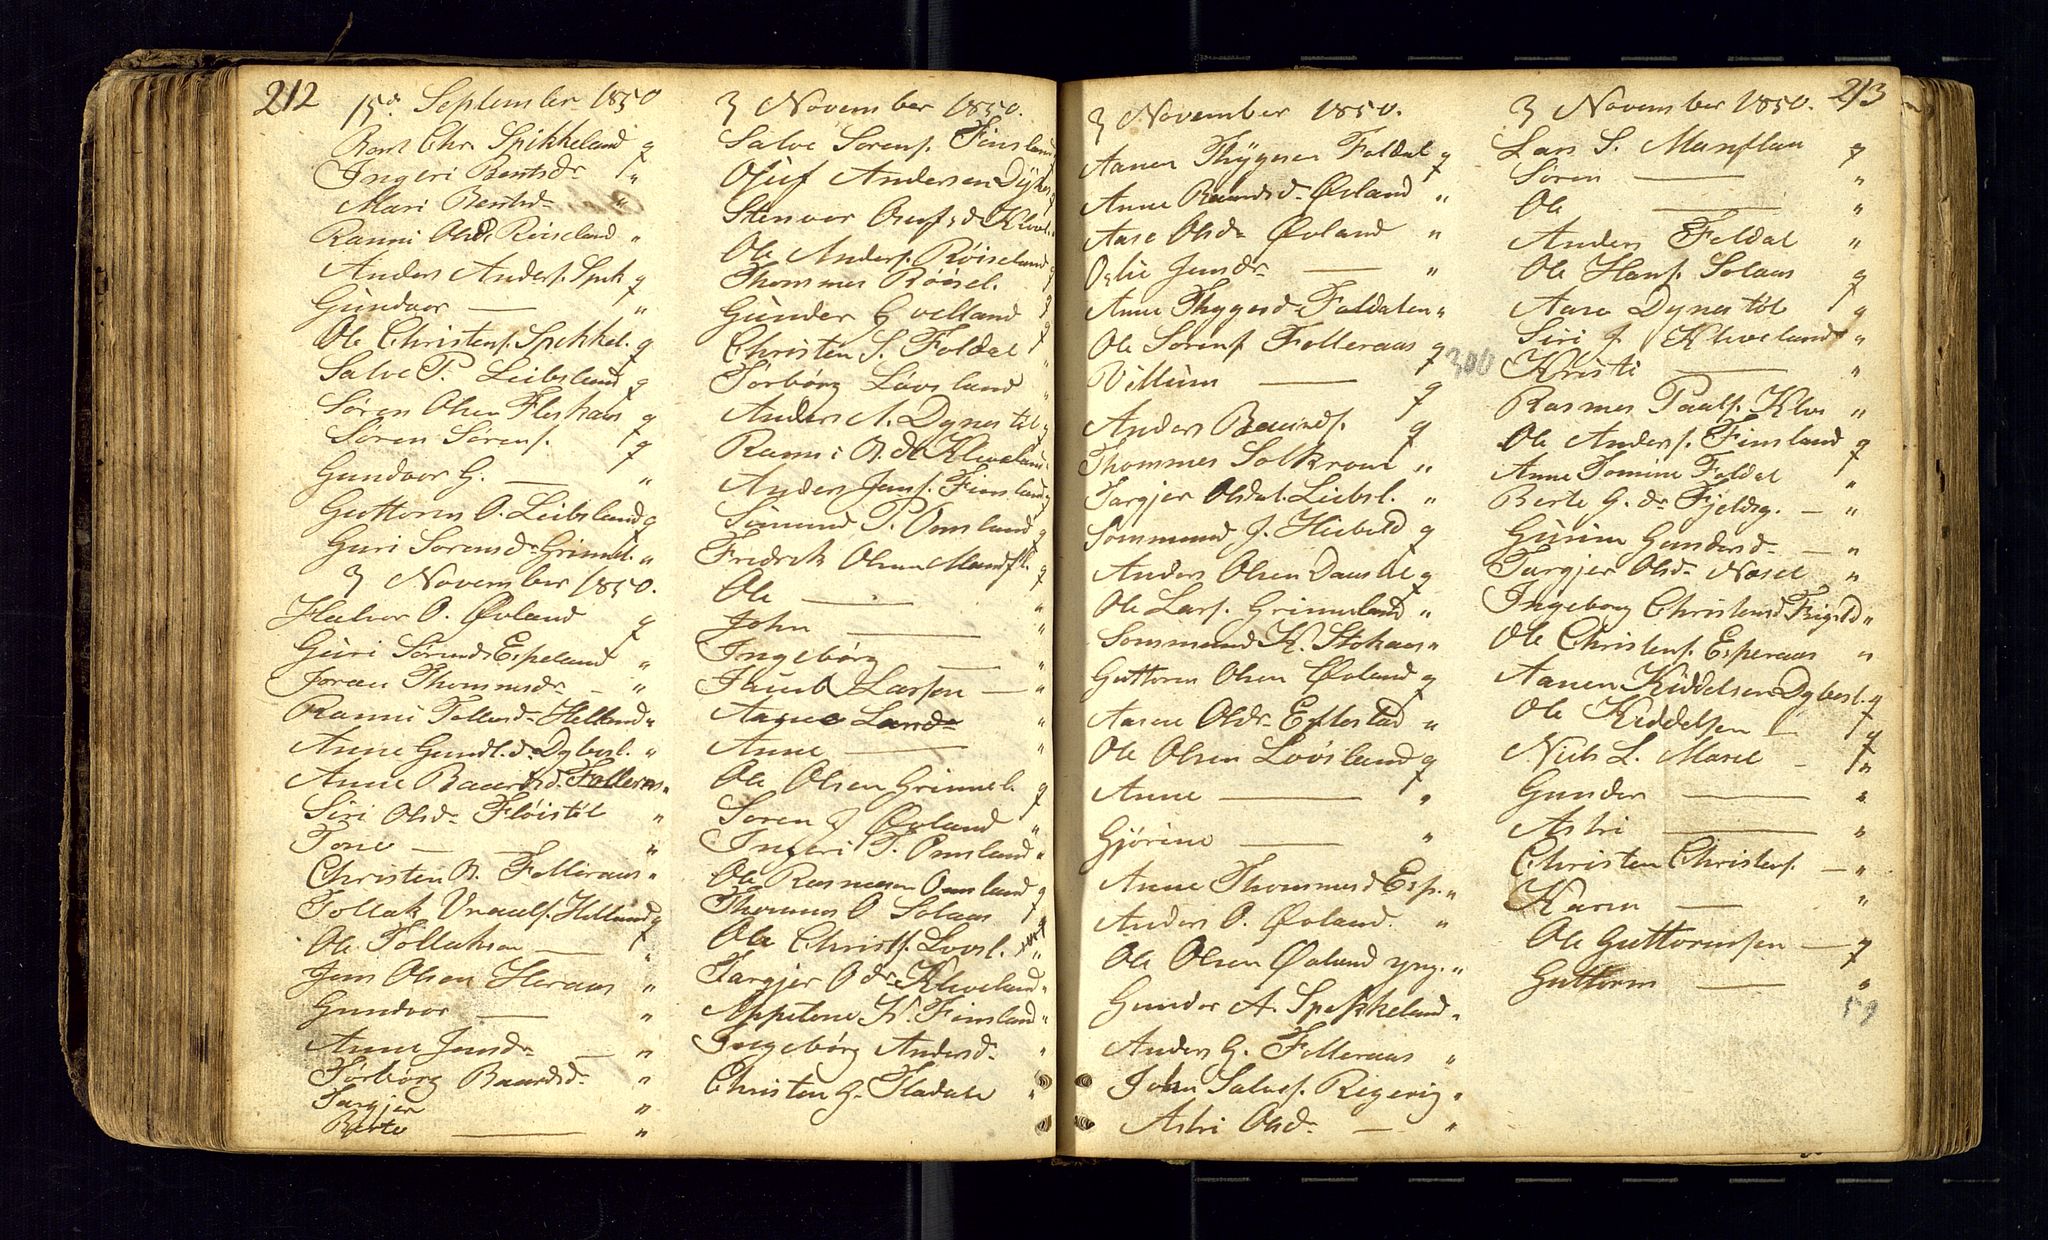 212
15de September 1850
Bent Chr. Spikkeland g
Ingeri Bentsdr "
Mari Bentsd "
Ranni Olsdr Röiseland "
Anders Anders. Spik g
Gundvor — "
Ole Christens. Spikkel. g
Salve P. Leibsland g
Sören Olsen Fleskaas g
Sören Sörens. g
Gundvor G. — "
Guttorm O. Leibsland g
Guri Sorensdr Grimel. "
3 November 1850.
Halvor O. Øvland g
Guri Sörensdr Espeland "
Joran Thommesdr — "
Ranni Tollevsdr Helland "
Anne Gundl.d. Dybesl. "
Anne Baardsd. Folleraas "
Siri Olsdr Flöistöl "
Tone — — "
Christen B. Folleraas "
Tollak Vraals. Helland g
Ole Tollaksen — "
Jens Olsen Heraas "
Gundvor — "
Anne Jensdr — "
Torbörg Baardsd. "
Targjer "
Berte — "
3 November 1850.
Salve Sorens. Finsland g
Oluf Andersen
Stenvor
Ole Anders. Röiseland g
Thommes Röisel. g
Gunder Qvelland g
Christen S. Foldal "
Torbörg Lövsland "
Anders A. Dynestöl g
Ranni B. dr Kleveland "
Anders Jens. Finsland g
Sömund P. Omsland g
Fredrik Olsen Mansfl. g
Ole — "
John — "
Ingebörg — "
Jacob Larsen — "
Aagne Larsdr "
Anne — "
Ole Olsen Grimel. g
Soren J Øvland "
Ingeri T. Omsland "
Ole Rasmusen Omsland g
Thommes O Solaas g
Ole Christs. Lovsl. "
Targjer O dr Kleveland "
Appelone K. Finsland "
Ingebörg Andersd. "
Christen G. Fladale "
213
3 November 1850.
Aanen Thygesen Foldal g
Anne Baardsd. Øvland "
Aase Olsdr Øvland "
Oslie Jensdr — "
Anne Thygesd. Foldalen "
Ole Sorens. Folleraas g
Villum — g
Anders Baards. g
Thommes Solkraal "
Targjer Olsdat. Liebsl. "
Sommund J. Hiebeld g
Anders Olsen Daasdal g
Ole Lars. Grimeland "
Sommund K. Stokaas "
Guttorm Olsen Øvland g
Aasne Olsdr Eftestad "
Ole Olsen Lovösland g
Anne — "
Gjörine — "
Anne Thommesd Esp. "
Anders O. Øvland "
Ole Olsen Øvland yng. "
Gundor A. Spikkeland "
Anders G. Folleraas "
John Salves. Rigevig "
Astri Olsd. — "
3 November 1850.
Lars S. Mansflaa g
Sören — "
Ole — "
Anders Foldal "
Ole Hans. Solaas g
Aase Dynestöl g
Siri J Kleveland "
300 Kristi — "
Rasmus Paals. Klev "
Ole Anders. Finsland g
Anne Tomine Foldal "
Berte G. dr Fjeldsg. — "
Gurine Gundersd. — "
Targjer Olsdr Nosel "
Ingeborg Christensd "
Ole Christens. Esperaas "
Aanen Kiddelsen Dybesl. g
Ole Kiddelsen — g
Niels L. Marel — "
Gunder — "
Astri — "
Christen Christens. — "
Karen — "
Ole Guttormsen — g
Guttorm — "
59